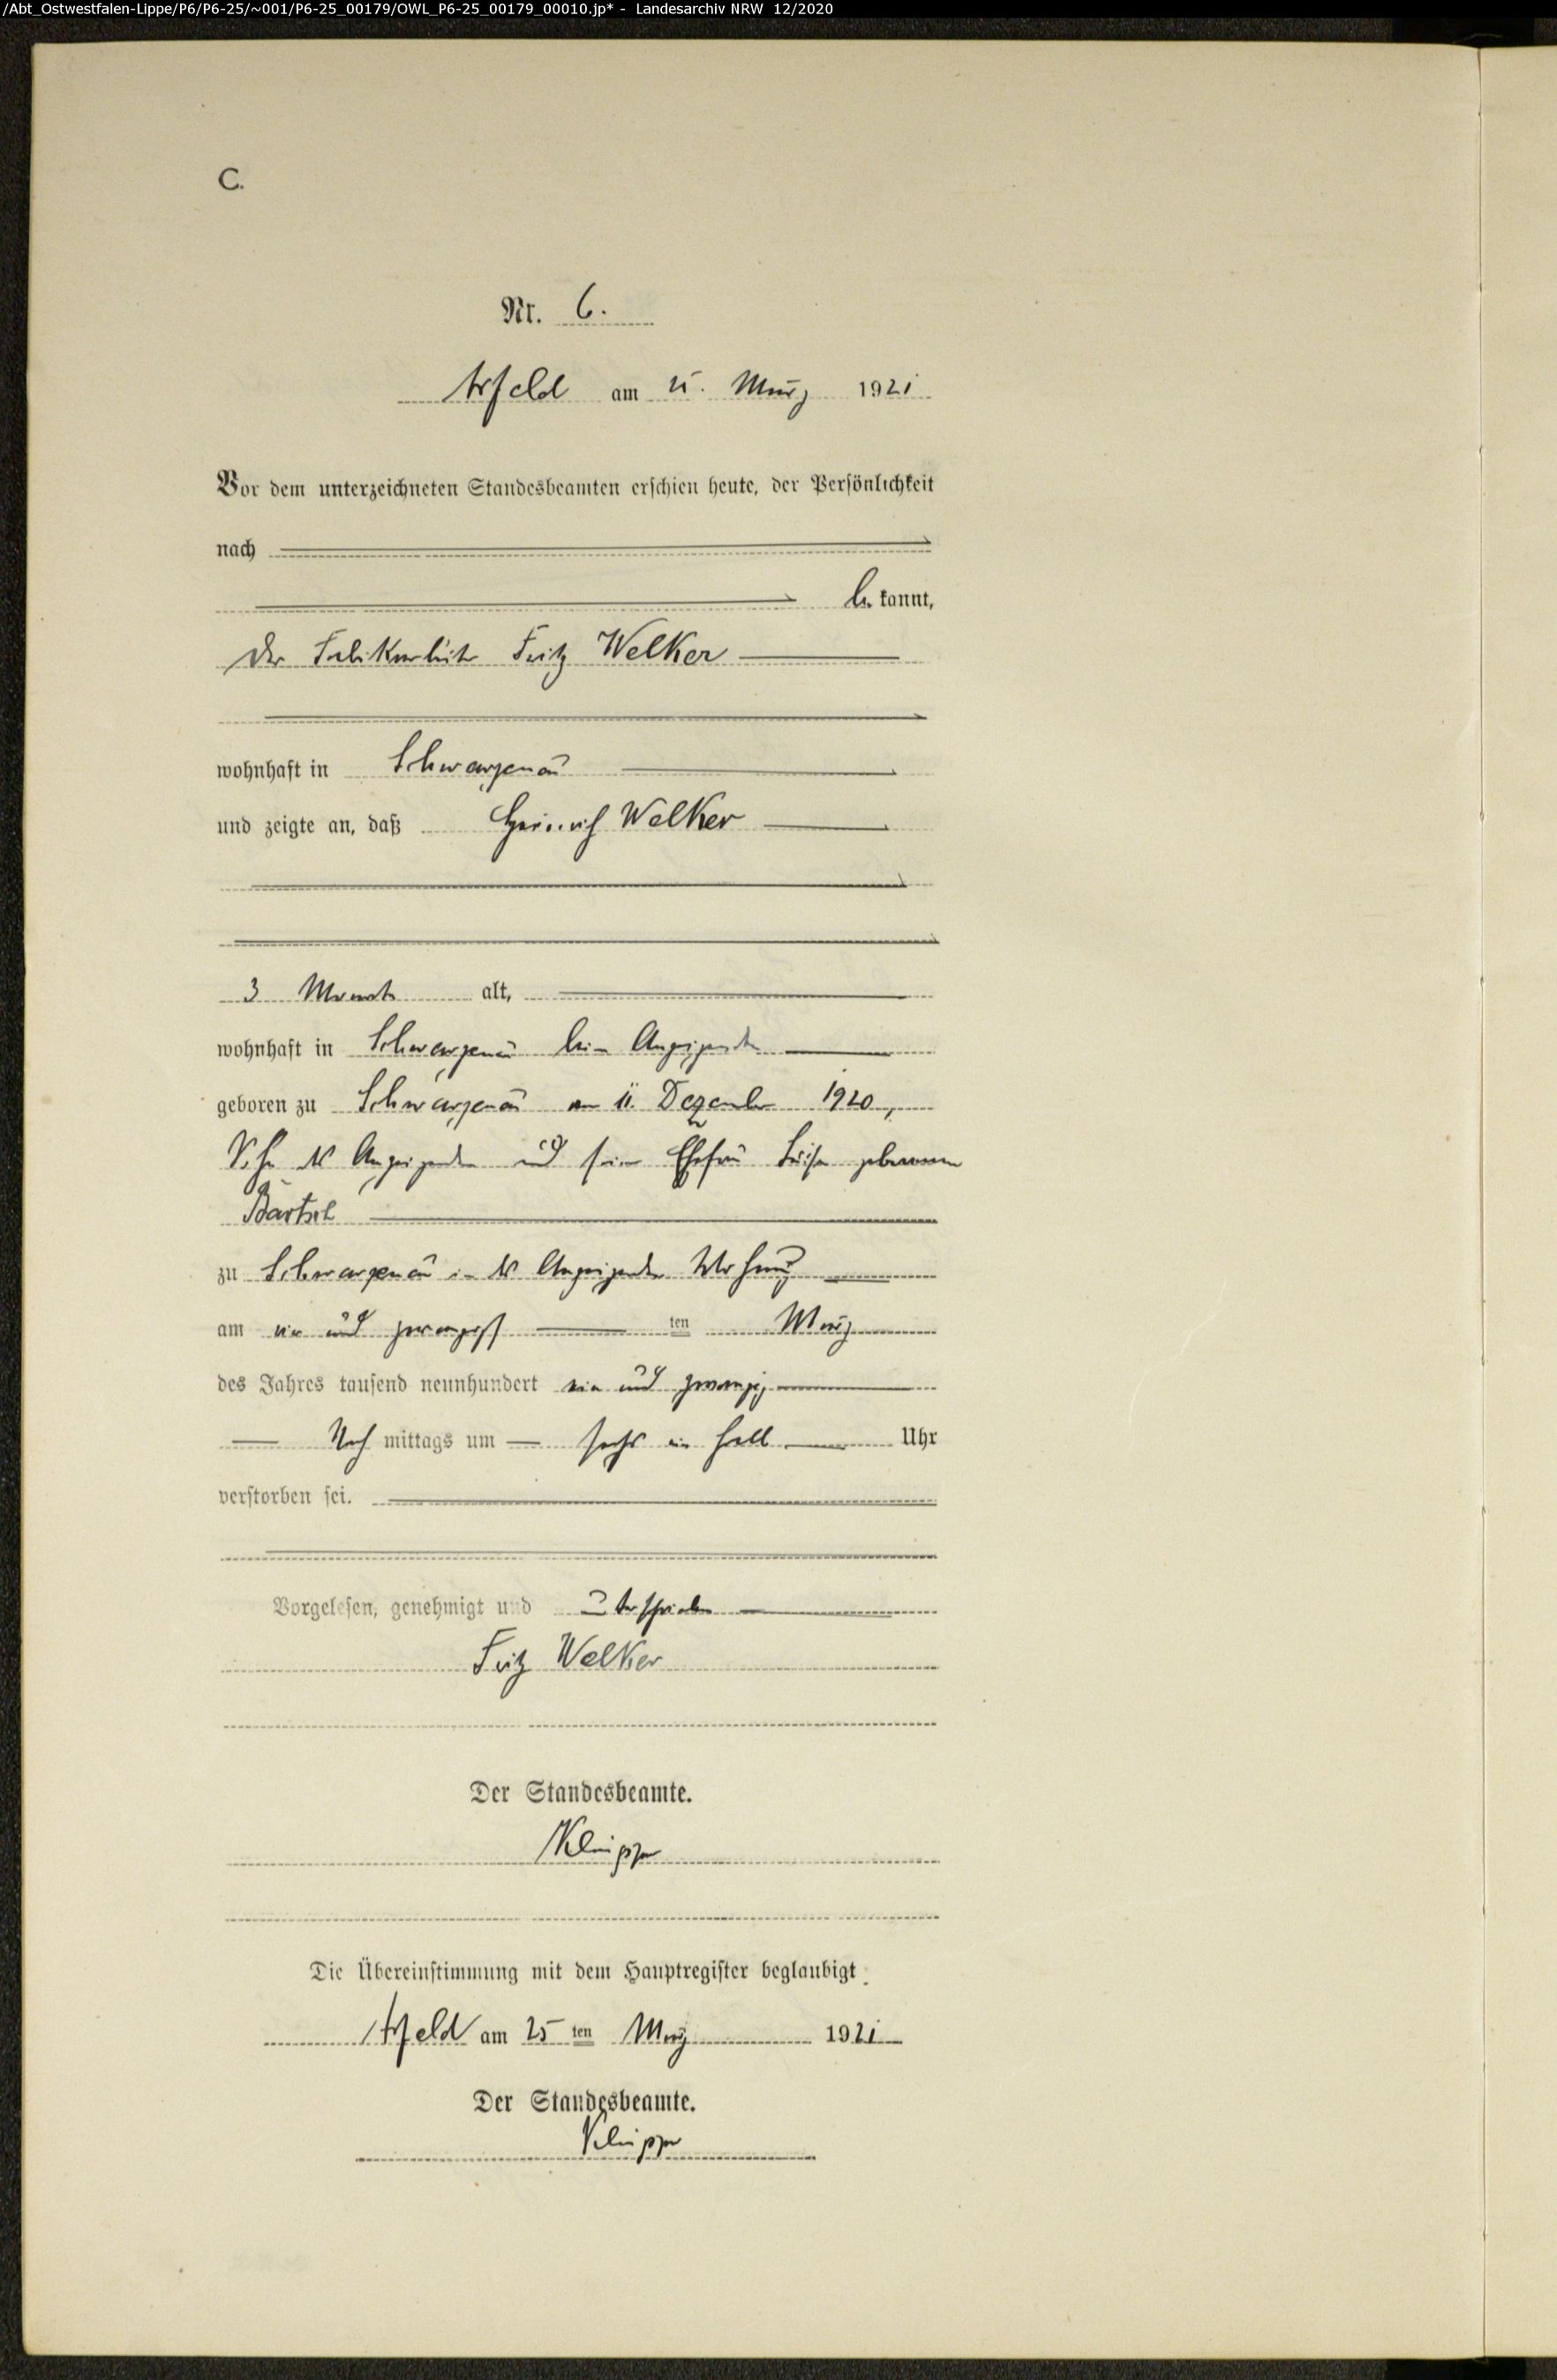 /Abt_Ostwestfalen-Lippe/P6/P6-25/~001/P6-25_00179/OWL_P6-25_00179_00010.jp* - Landesarchiv NRW 12/2020
C.
Nr. 6.
Arfeld am 25. März 1921
Vor dem unterzeichneten Standesbeamten erschien heute, der Persönlichkeit
nach
be kannt,
der Fabrikarbeiter Fritz Welker
wohnhaft in Schwarzenau
und zeigte an, daß Heinrich Welker
3 Monate alt,
wohnhaft in Schwarzenau beim Anzeigenden
geboren zu Schwarzenau am 11. Dezember 1920,
Sohn des Anzeigenden und seiner Ehefrau Luise geborenen
Bärtsel
zu Schwarzenau in des Anzeigenden Wohnung
am ein und zwanzigst ten März
des Jahres tausend neunhundert ein und zwanzig
Nach mittags um sechs ein halb Uhr
verstorben sei.
Vorgelesen, genehmigt und unterschrieben
Fritz Welker
Der Standesbeamte.
Die Übereinstimmung mit dem Hauptregister beglaubigt
Arfeld am 25 ten März 1921
Der Standesbeamte.